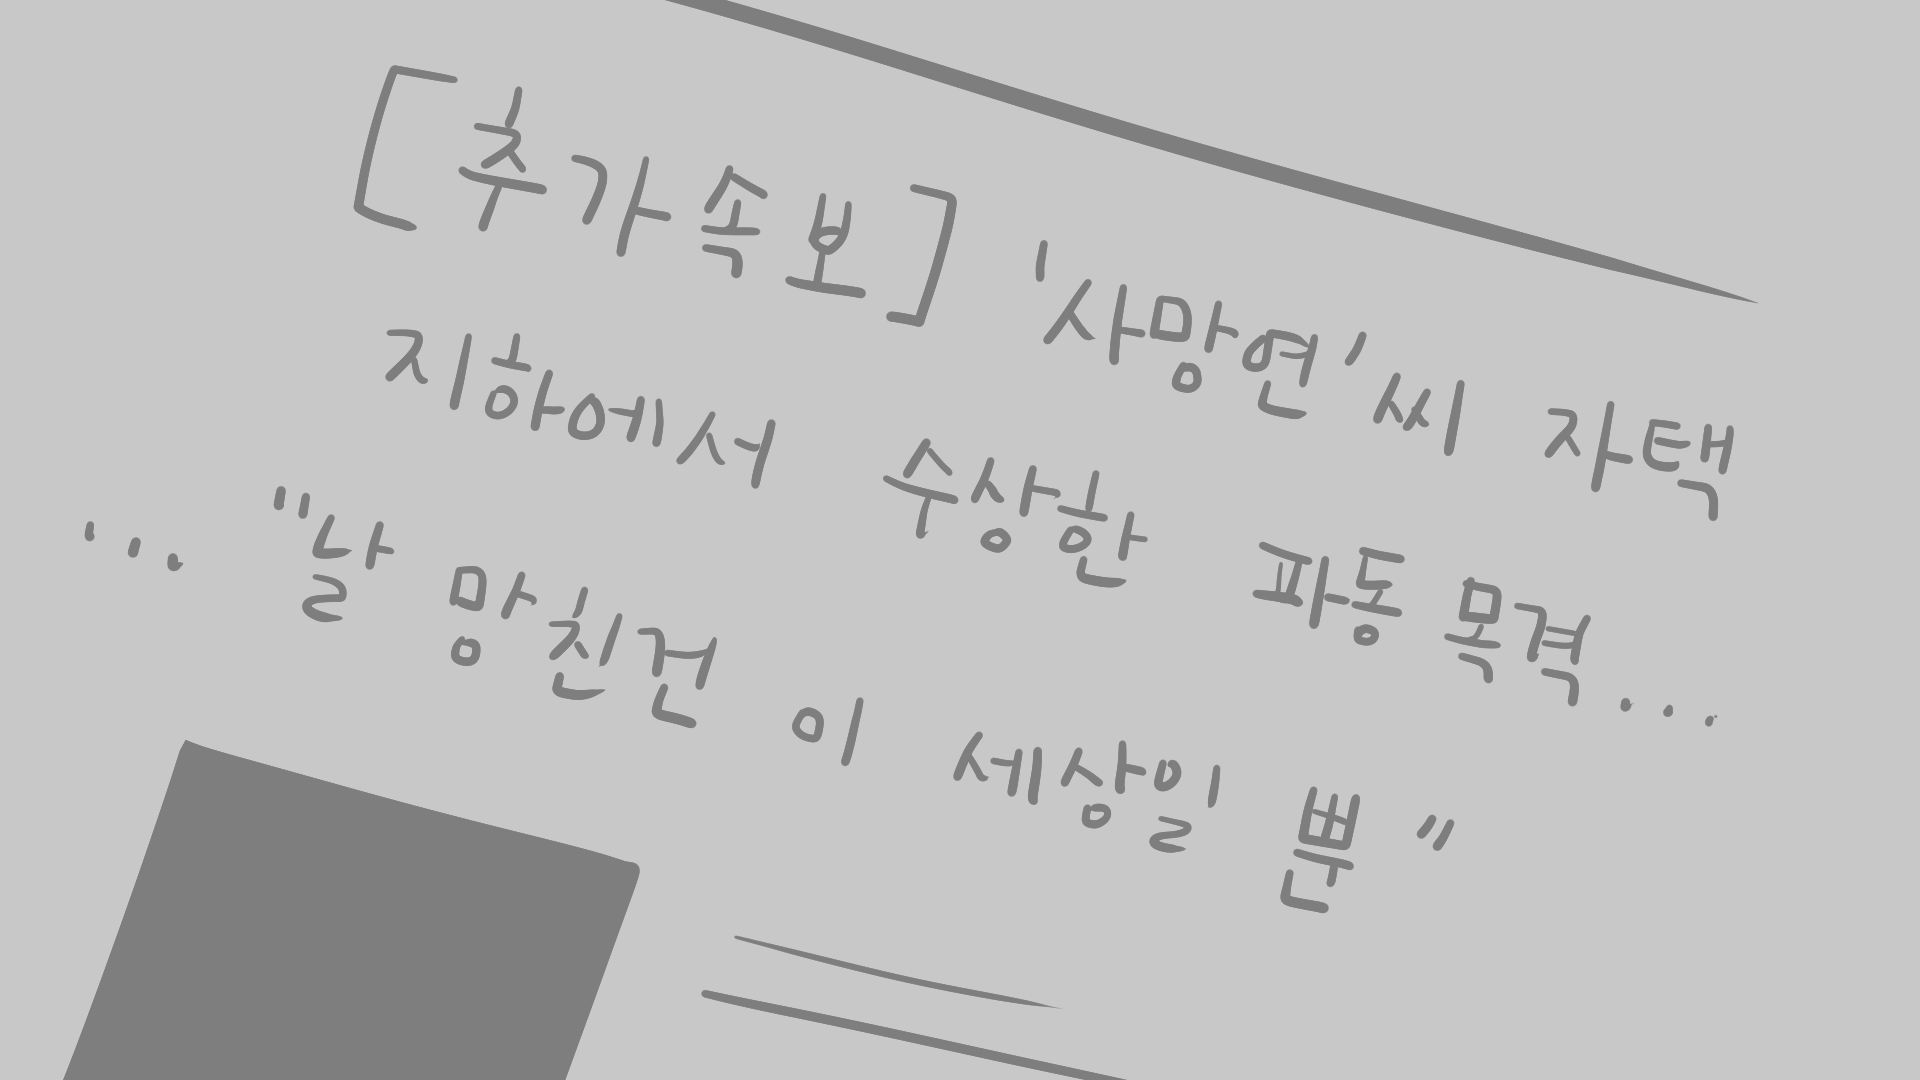 [추가속보] '사망연'씨 자택
지하에서 수상한 파동 목격...
... "날 망친건 이 세상일 뿐"